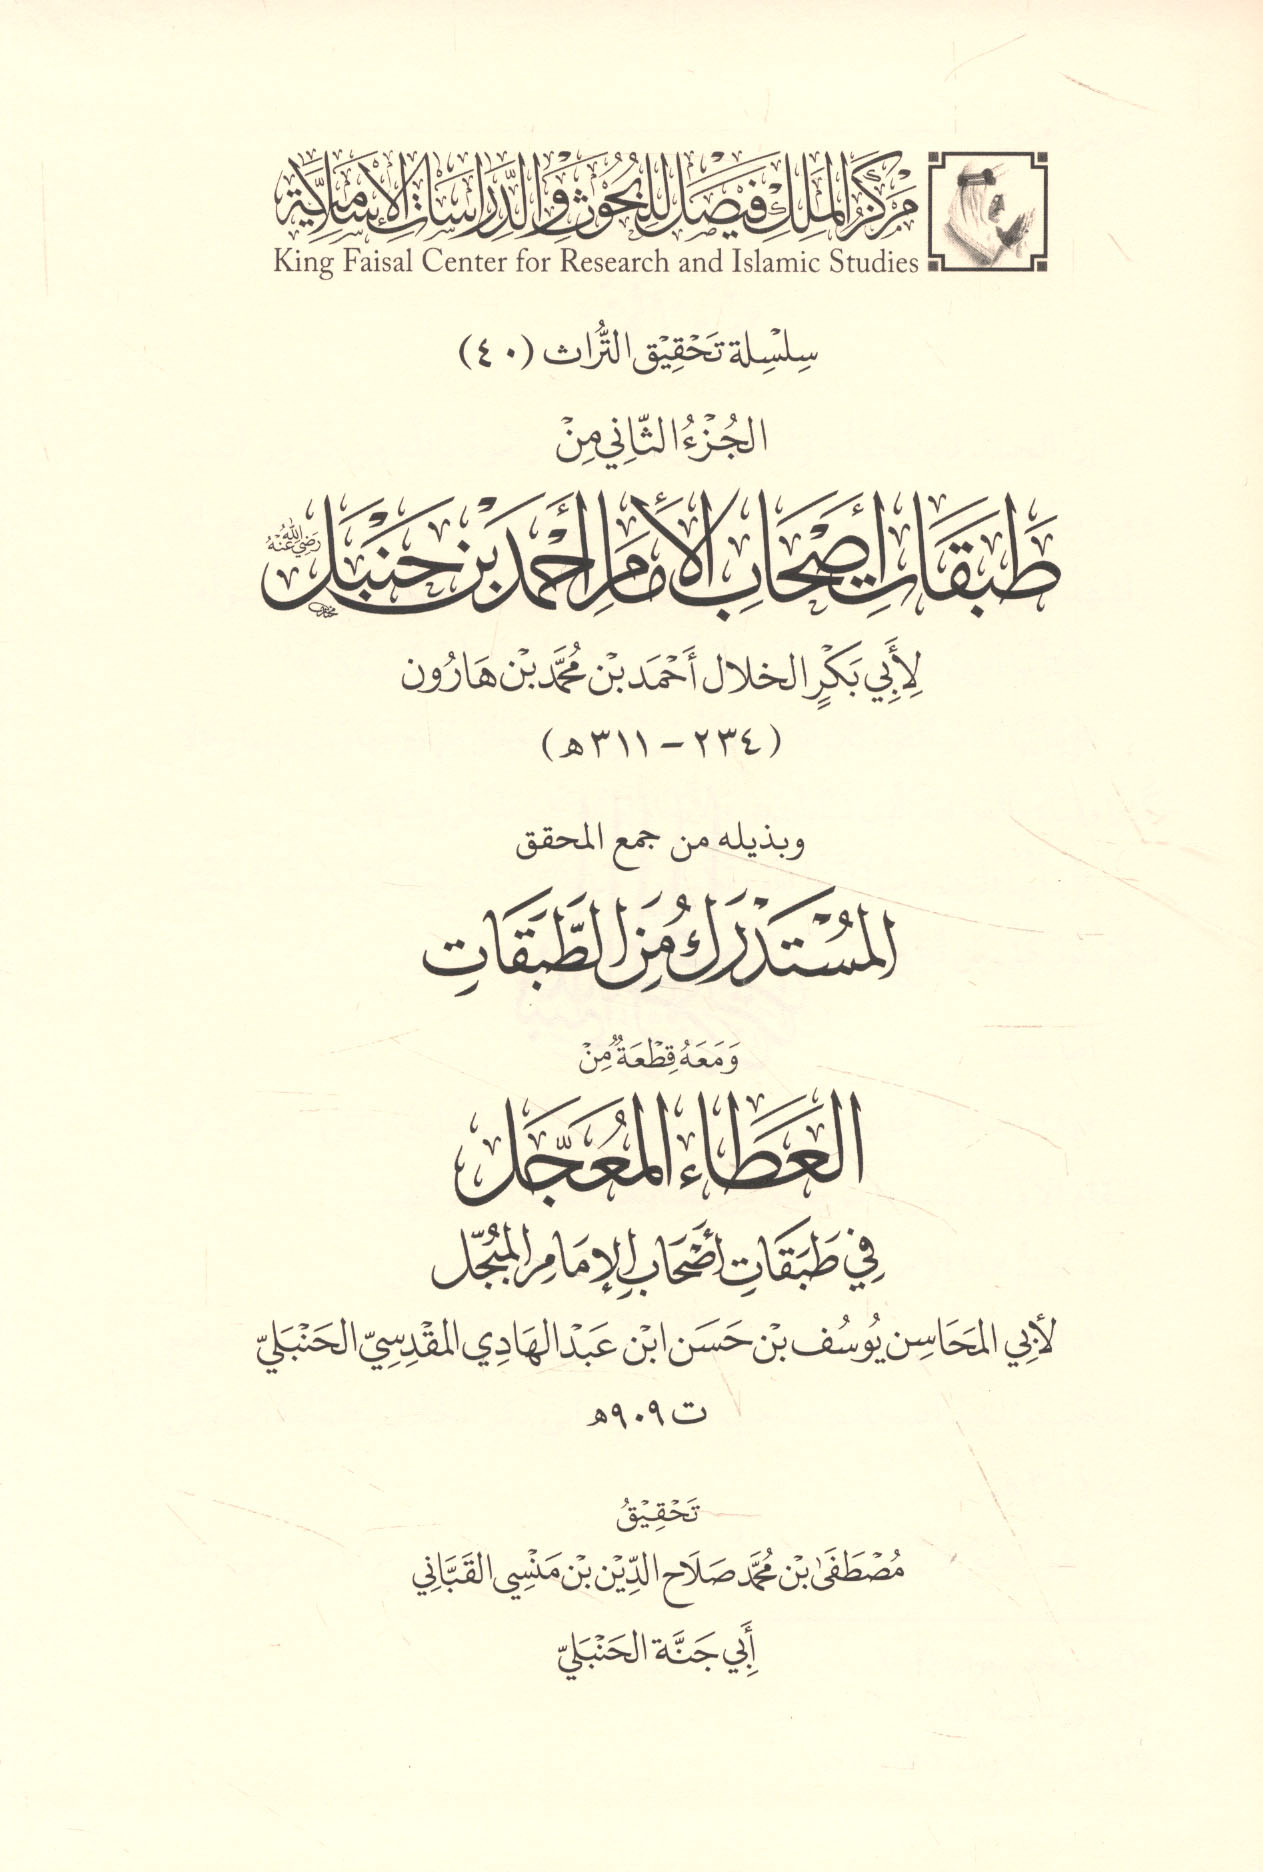 مركز الملك فيصل للبحوث والدراسات الإسلامية
King Faisal Center for Research and Islamic Studies
سِلسِلة تَحْقِيْق التُّراث (٤٠)
الجُزْءُ الثَّانِي مِنْ
طَبَقَاتِ أَصْحَابِ الأَمَامِ أَحْمَد بْن حَنْبَل رَضِيَ اللهُ عَنْهُ
لِأَبِي بَكْرٍ الخلال أَحْمَد بْن مُحمَّد بْن هَارُون
(٢٣٤ - ٣١١هـ)
وبذيله من جمع المحقق
المُسْتَدْرَك مِنَ الطَّبَقَاتِ
وَمَعَهُ قِطْعَةٌ مِنْ
العَطَاء المُعَجَّل
فِي طَبَقَاتِ أَصْحَابِ الإِمَامِ المُبَجَّل
لأَبِي المَحَاسِن يُوسُف بْن حَسَن ابْن عَبْد الهَادِي المَقْدِسِيّ الحَنْبَلِيّ
ت ٩٠٩هـ
تَحْقِيْقُ
مُصْطَفَى بْن مُحمَّد صَلَاح الدِّيْن بْن مَنْسِي القَبَّانِي
أَبِي جَنَّة الحَنْبَلِيّ